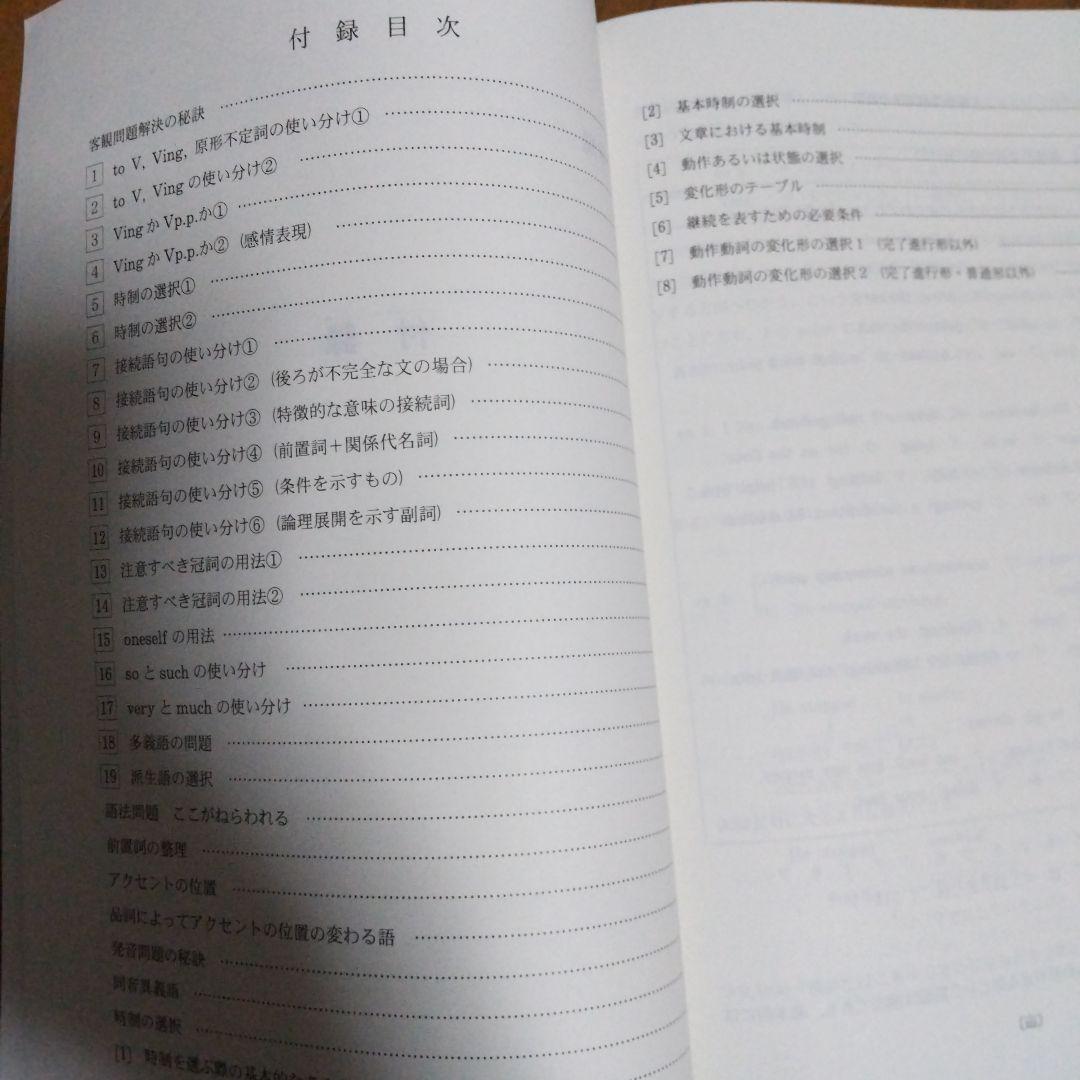 付録目次
客観問題解決の秘訣
1 to V, Ving, 原形不定詞の使い分け①
2 to V, Ving の使い分け②
3 Ving か Vp.p.か①
4 Ving か Vp.p.か② (感情表現)
5 時制の選択①
6 時制の選択②
7 接続語句の使い分け①
8 接続語句の使い分け② (後ろが不完全な文の場合)
9 接続語句の使い分け③ (特徴的な意味の接続詞)
10 接続語句の使い分け④ (前置詞+関係代名詞)
11 接続語句の使い分け⑤ (条件を示すもの)
12 接続語句の使い分け⑥ (論理展開を示す副詞)
13 注意すべき冠詞の用法①
14 注意すべき冠詞の用法②
15 oneself の用法
16 so と such の使い分け
17 very と much の使い分け
18 多義語の問題
19 派生語の選択
語法問題 ここがねらわれる
前置詞の整理
アクセントの位置
品詞によってアクセントの位置の変わる語
発音問題の秘訣
同音異義語
時制の選択
[1] 時制を選ぶ際の基本的な
[2] 基本時制の選択
[3] 文章における基本時制
[4] 動作あるいは状態の選択
[5] 変化形のテーブル
[6] 継続を表すための必要条件
[7] 動作動詞の変化形の選択1 (完了進行形以外)
[8] 動作動詞の変化形の選択2 (完了進行形・普通形以外)